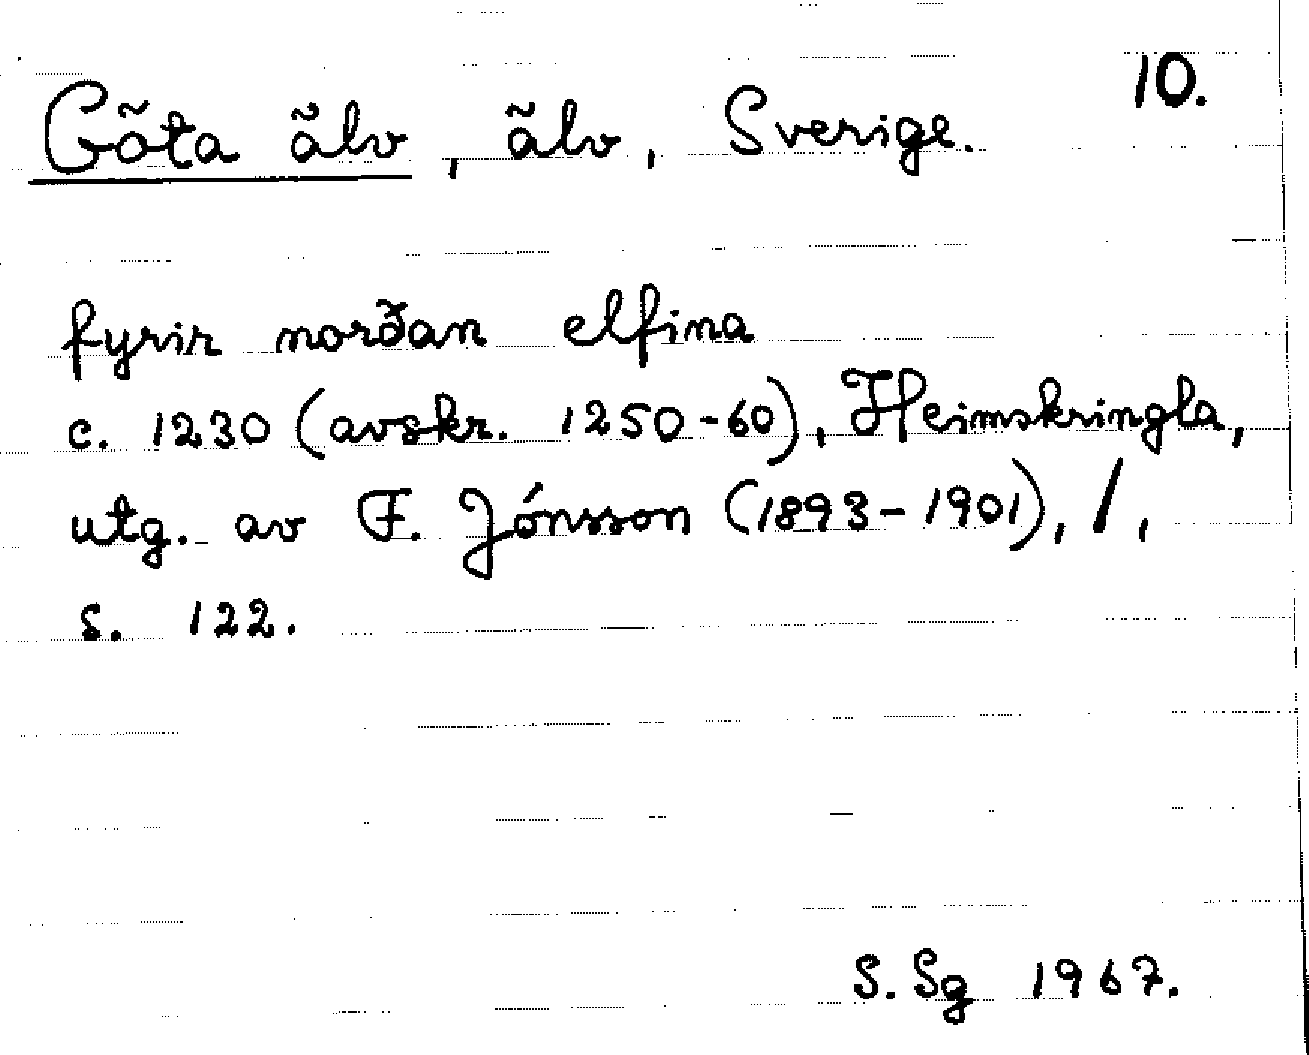 10.
Göta älv, älv, Sverige.
fyrir norðan elfina
c. 1230 (avskr. 1250-60), Heimskringla,
utg. av F. Jónsson (1893-1901), I,
s. 122.
S. Sg 1967.